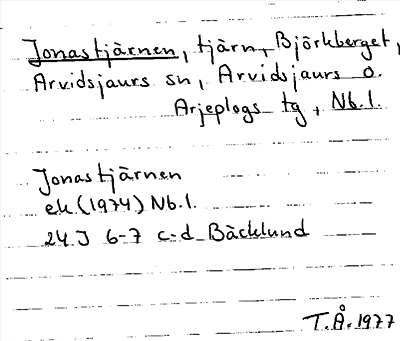 Jonastjärnen, tjärn, Björkberget,
Arvidsjaurs sn, Arvidsjaurs o.
Arjeplogs tg, Nb.l.
Jonastjärnen
ek (1974) Nb.l.
24J 6-7 c-d Bäcklund
T.Å. 1977